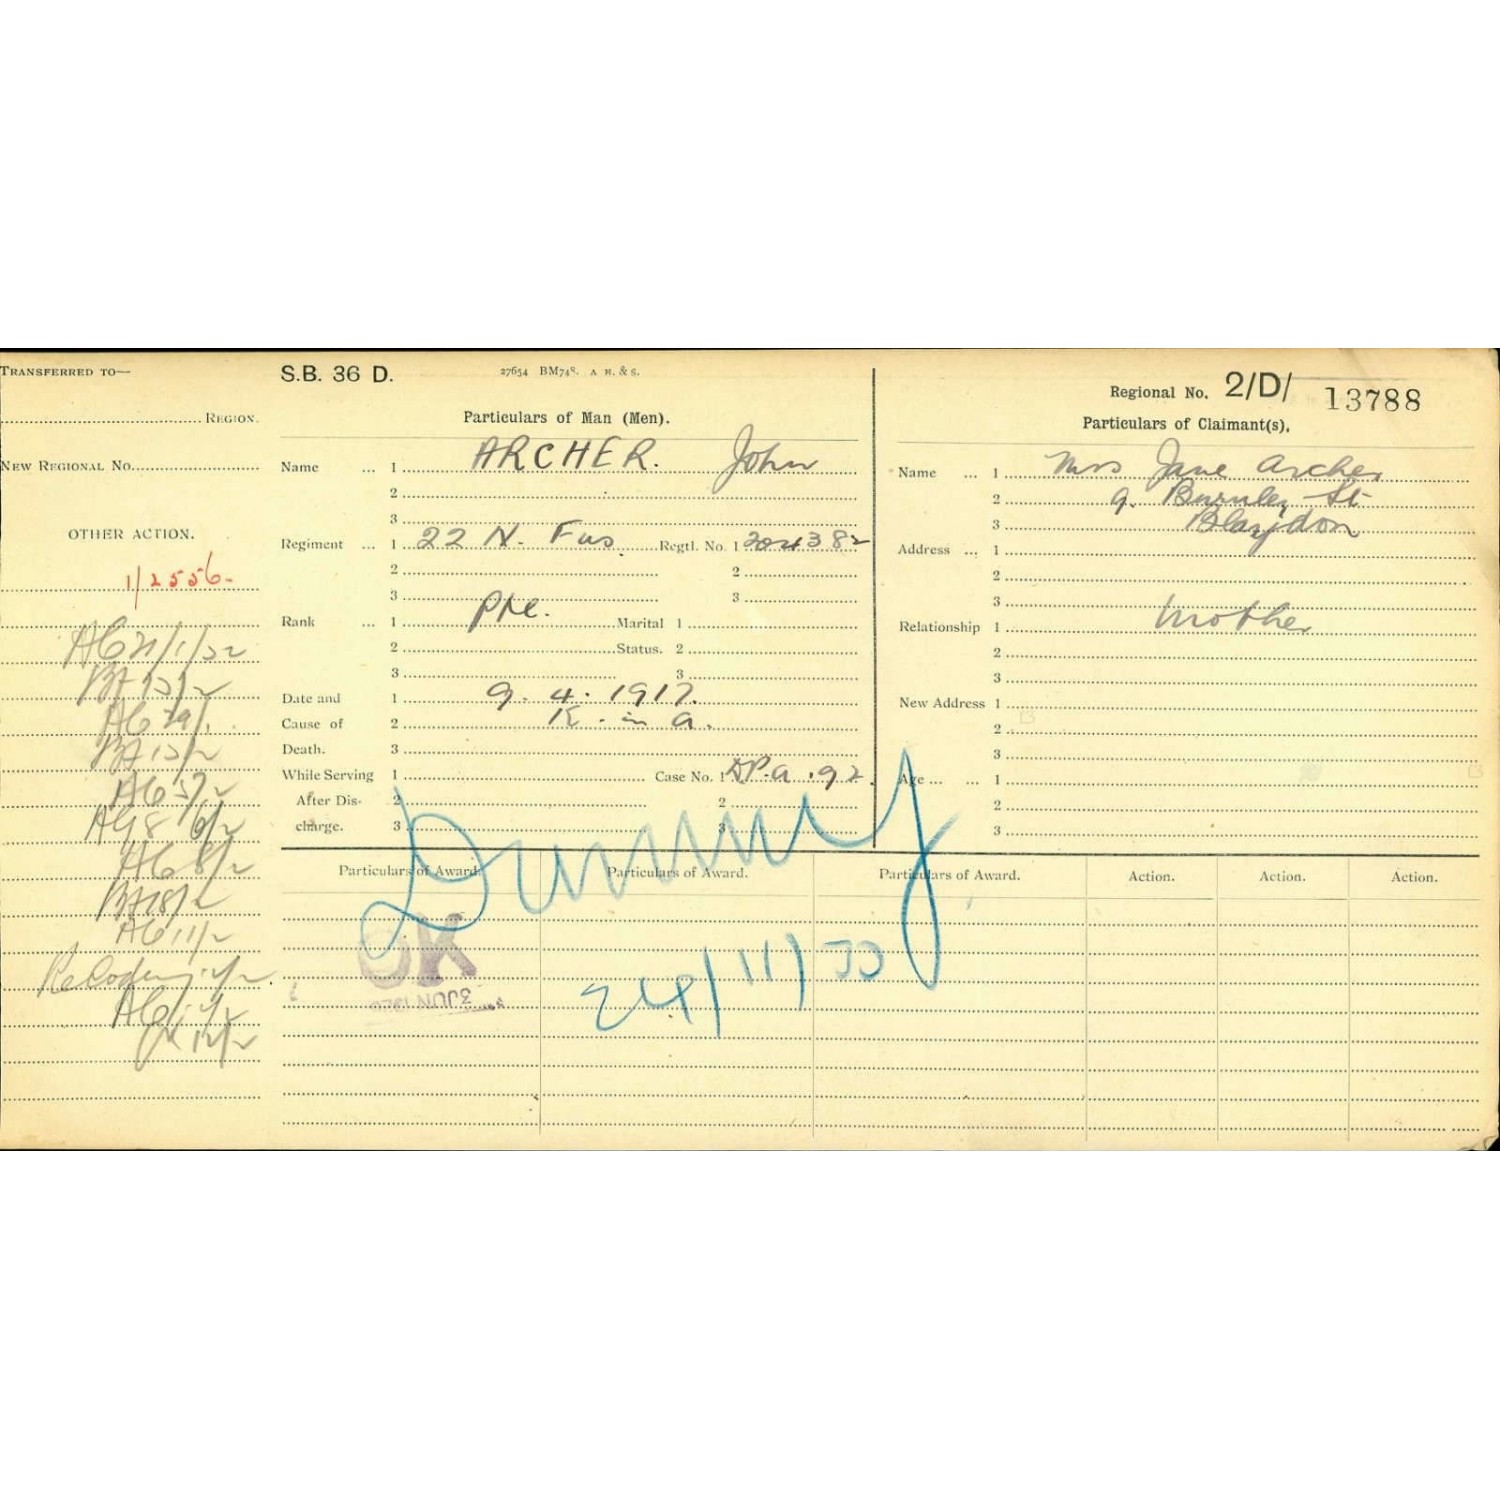 TRANSFERRED TO—
REGION.
NEW REGIONAL No.
OTHER ACTION.
1/2556.
AG 21/1/22
AG 29/1
AG 8/2
AG 11/2
S.B. 36 D.
27654 BM748. A H. & S.
Particulars of Man (Men).
Name ... 1 ARCHER. John
2
3
Regiment ... 1 22 N. Fus. Regtl. No. 1 204382
2 2
3 3
Rank ... 1 Pte. Marital 1
2 Status. 2
3 3
Date and 1 9. 4. 1917.
Cause of 2 K. in a.
Death. 3
While Serving 1 Case No. 1 DP.a.92.
After Dis- 2 2
charge. 3 3
Regional No. 2/D/ 13788
Particulars of Claimant(s).
Name ... 1 Mrs Jane Archer
2 9. Burnley St
3 Blaydon
Address ... 1
2
3
Relationship 1 Mother
2
3
New Address 1
2
3
Age ... ... 1
2
3
Dummy
Particulars of Award. Particulars of Award. Particulars of Award. Action. Action. Action.
OK
3 JUN
24/11/33